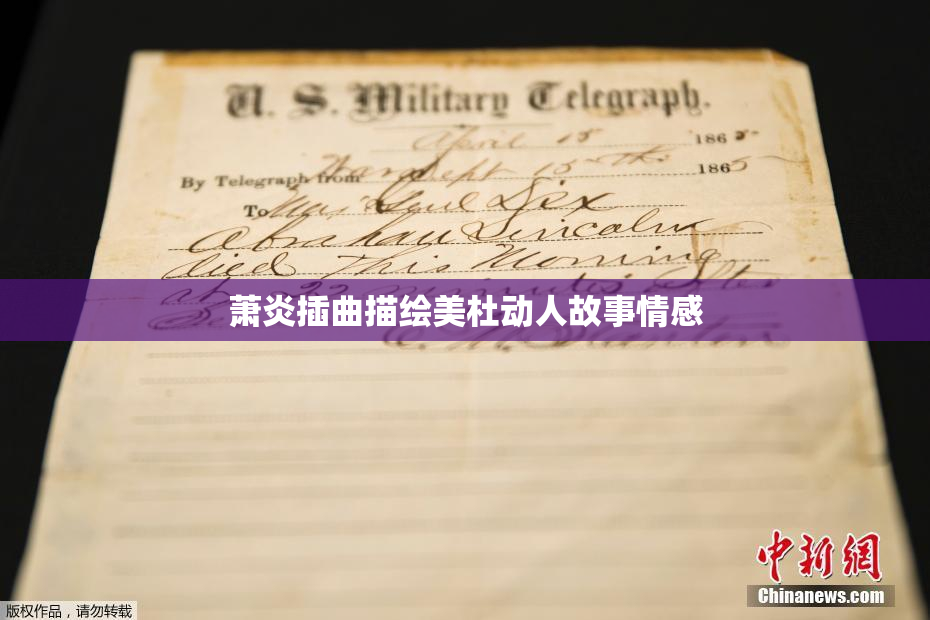 U. S. Military Telegraph.
April 15 1865
By Telegraph from War Dept 15th 1865
To Maj Genl Dix
Abraham Lincoln
died This Morning
at 22 minutes after
萧炎插曲描绘美杜动人故事情感
E. M. Stanton
中新网
Chinanews.com
版权作品，请勿转载